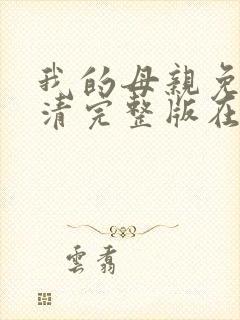 我的母親免
清完整版在
雲翥